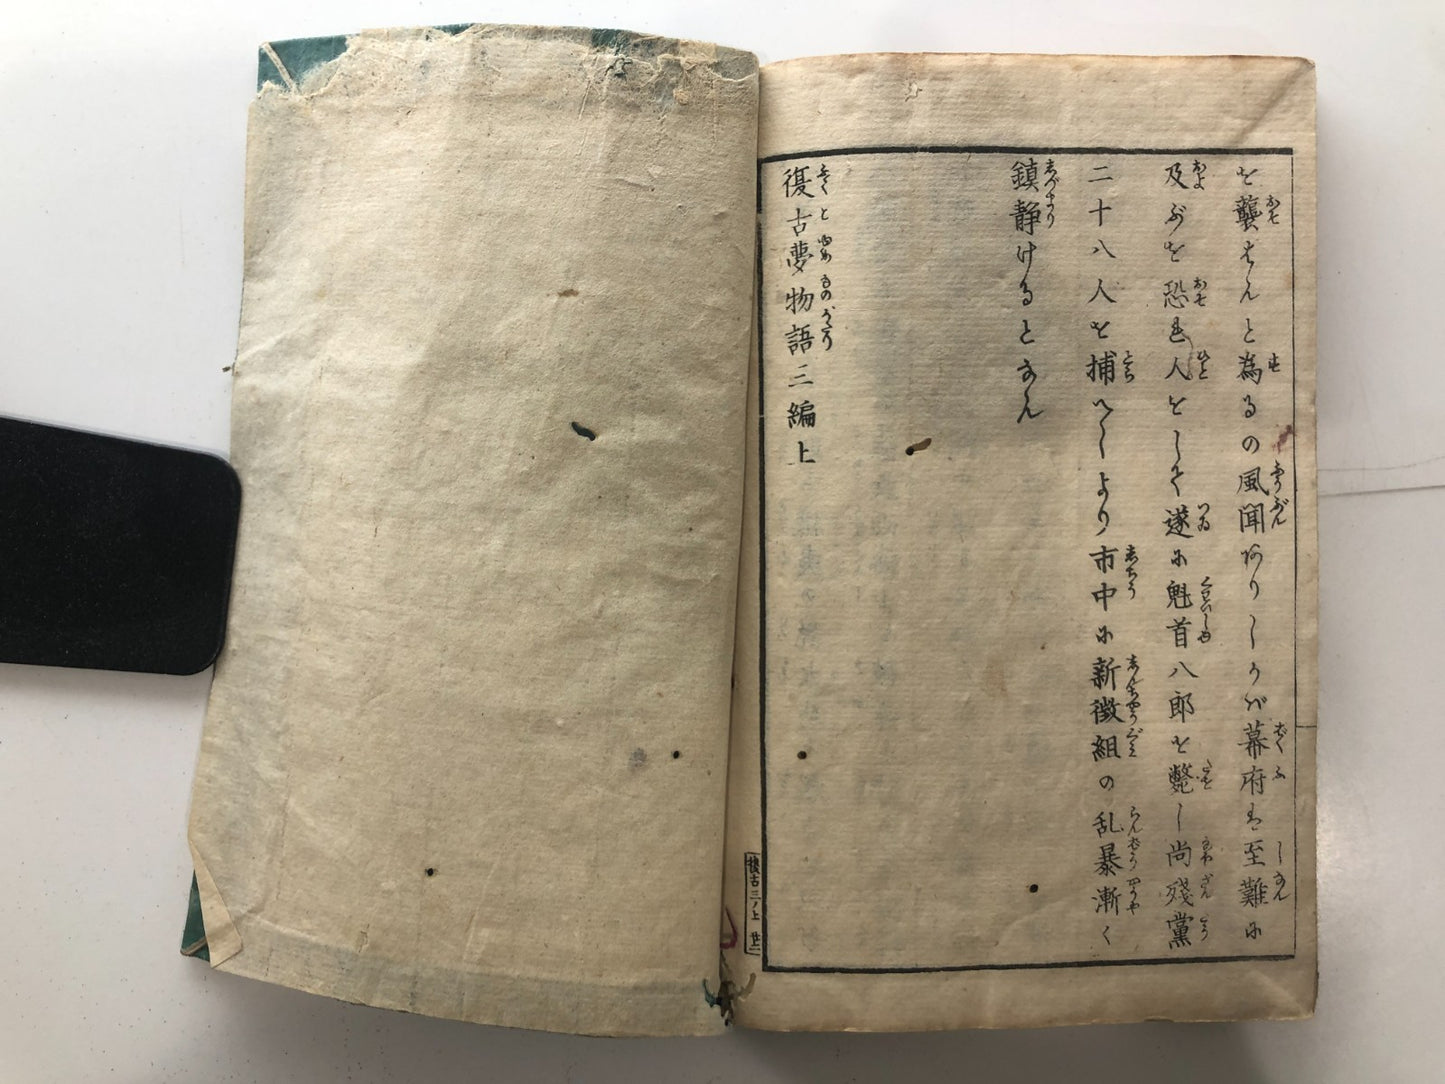 を襲はんと為るの風聞ありしかば幕府は至難に
及ぶを恐れ人をして遂に魁首八郎を斃し尚残黨
二十八人を捕へしより市中に新徴組の乱暴漸く
鎮静けるとなん
復古夢物語三編上
復古三ノ上 廿二